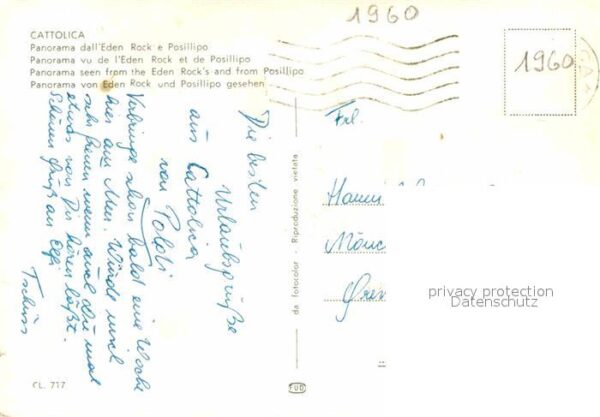 1960
CATTOLICA
Panorama dall'Eden Rock e Posillipo
Panorama vu de l'Eden Rock et de Posillipo
Panorama seen from the Eden Rock's and from Posillipo
Panorama von Eden Rock und Posillipo gesehen
1960
Die besten
Urlaubsgrüße
aus Cattolica
von Poldi
Verbringe schon bald eine Woche
hier am Meer. Würde mich
sehr freuen wenn auch Du mal
etwas von Dir hören läßt.
Schönen Gruß an Elfi
Tschüss
da fotocolor - Riproduzione vietata
Frl.
Hanni
Mönc
privacy protection
Datenschutz
1960
CL. 717